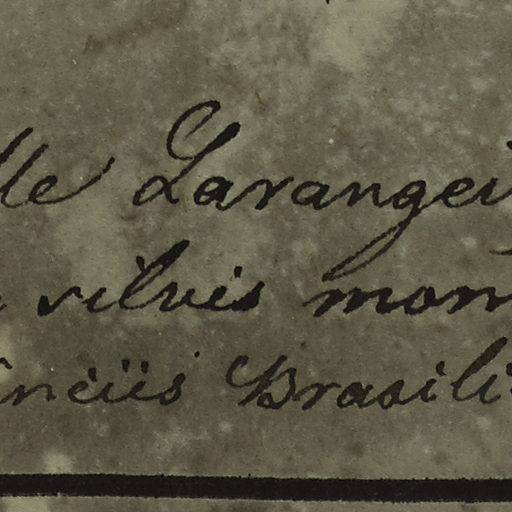 lle Larangei
silvis mon
inciis Brasili